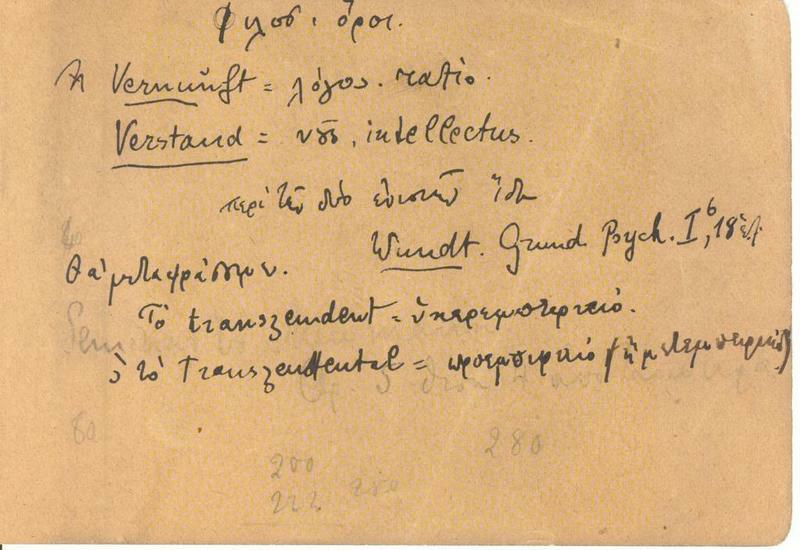 Φιλοσ. ὅροι.
Ἡ Vernunft = λόγος. ratio.
Verstand = νοῦς, intellectus.
περὶ τῶν δύο ἐννοιῶν ἴδε
Wundt. Grund. Psych. I⁶, 18 ἑξ.
θὰ μεταφράσωμεν.
Τὸ transzendent = ὑπερεμπειρικό.
τὸ Transzendental = προεμπειρικό (ἢ μετεμπειρικό)
80
280
200
222 280